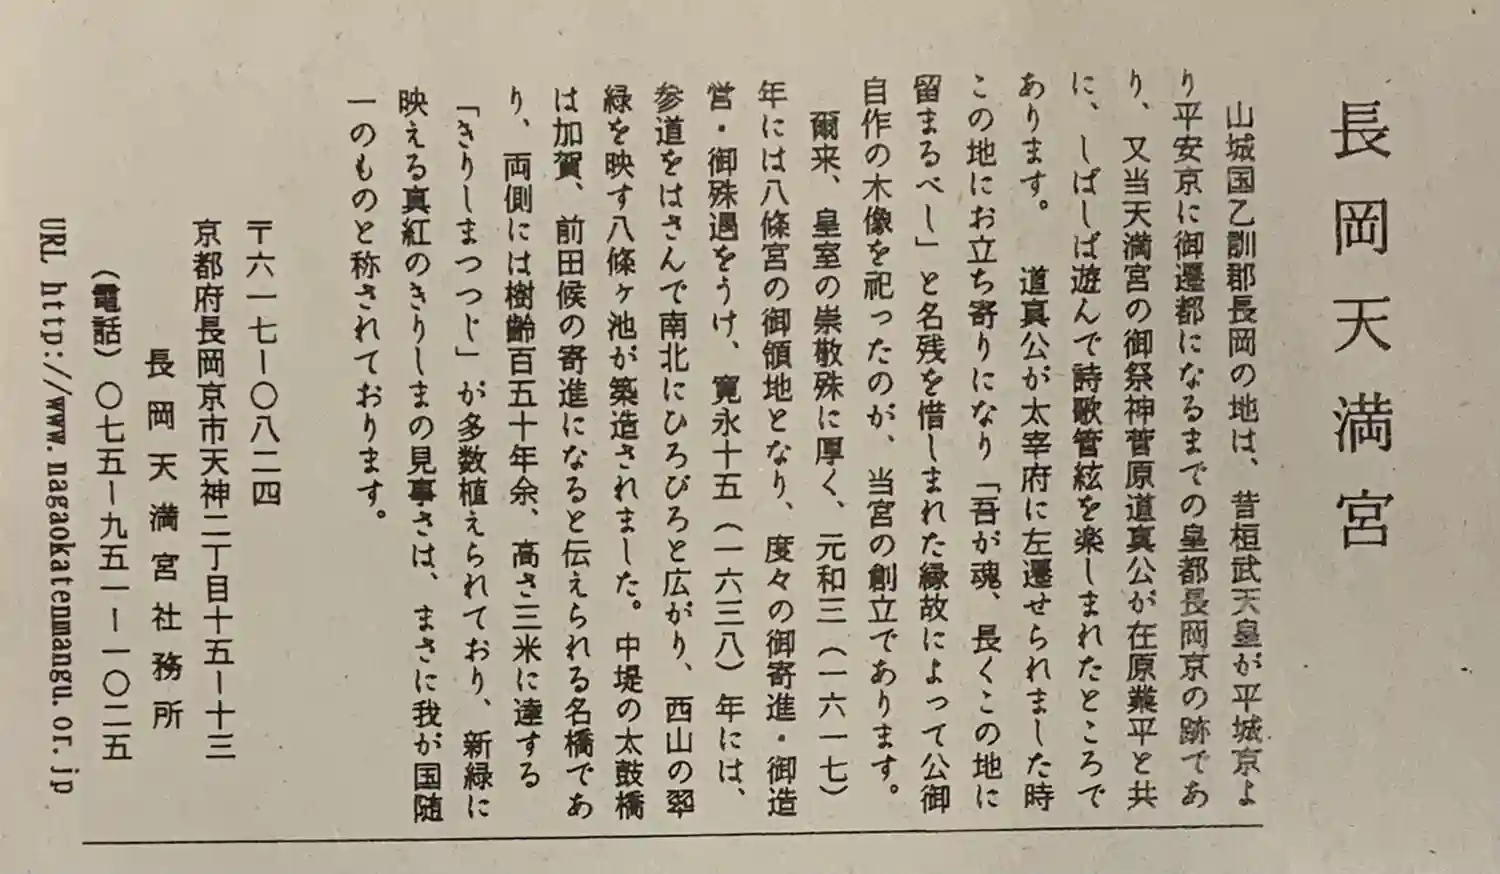 長岡天満宮
山城国乙訓郡長岡の地は、昔桓武天皇が平城京よ
り平安京に御遷都になるまでの皇都長岡京の跡であ
り、又当天満宮の御祭神菅原道真公が在原業平と共
に、しばしば遊んで詩歌管絃を楽しまれたところで
あります。　道真公が太宰府に左遷せられました時
この地にお立ち寄りになり「吾が魂、長くこの地に
留まるべし」と名残を惜しまれた縁故によって公御
自作の木像を祀ったのが、当宮の創立であります。
爾来、皇室の崇敬殊に厚く、元和三（一六一七）
年には八條宮の御領地となり、度々の御寄進・御造
営・御殊遇をうけ、寛永十五（一六三八）年には、
参道をはさんで南北にひろびろと広がり、西山の翠
緑を映す八條ヶ池が築造されました。中堤の太鼓橋
は加賀、前田候の寄進になると伝えられる名橋であ
り、両側には樹齢百五十年余、高さ三米に達する
「きりしまつつじ」が多数植えられており、新緑に
映える真紅のきりしまの見事さは、まさに我が国随
一のものと称されております。
〒六一七ー〇八二四
京都府長岡京市天神二丁目十五ー十三
長岡天満宮社務所
（電話）〇七五ー九五一ー一〇二五
URL http://www.nagaokatenmangu.or.jp